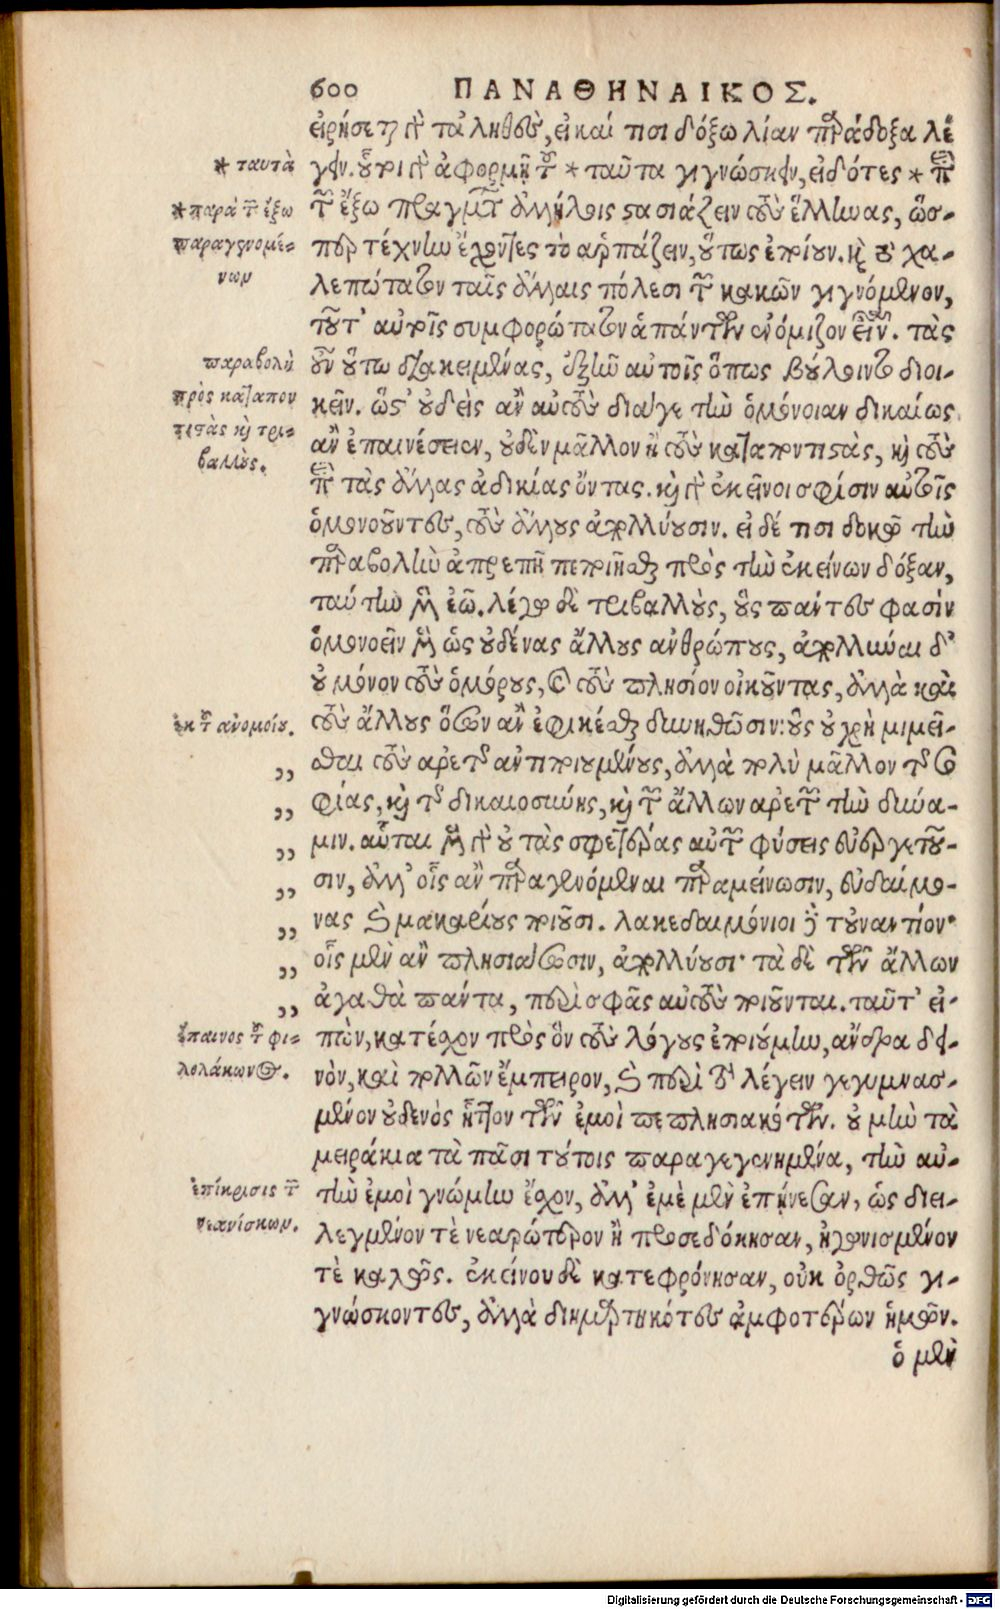 600 ΠΑΝΑΘΗΝΑΙΚΟΣ.
εἰρήσεται γὰρ τἀληθὲς, εἰ καί τισι δόξω λίαν παράδοξα λέ
* ταυτὰ
γειν. οὗτοι γὰρ ἀφορμὴν τοῦ * ταῦτα γιγνώσκειν, εἰδότες * ἐπὶ
* παρὰ τῶν ἔξω
τῶν ἔξω πραγμάτων ἀλλήλοις στασιάζειν τοὺς ἕλληνας, ὥσ-
παραγενομέ-
περ τέχνην ἔχοντες τὸ ἁρπάζειν, οὕτως ἐποίουν. καὶ τὸ χα-
νων
λεπώτατον ταῖς ἄλλαις πόλεσι τῶν κακῶν γιγνόμενον,
τοῦτ' αὑτοῖς συμφορώτατον ἁπάντων ἐνόμιζον εἶναι. τὰς
παραβολὴ
οὖν οὕτω διακειμένας, ἐξῆν αὐτοῖς ὅπως βούλοιντο διοι-
πρὸς καταπον
κεῖν. ὥστ' οὐδεὶς ἂν αὐτοὺς διά γε τὴν ὁμόνοιαν δικαίως
τιστὰς καὶ τρι-
ἂν ἐπαινέσειεν, οὐδὲν μᾶλλον ἢ τοὺς καταποντιστὰς, καὶ τοὺς
βαλλούς.
ἐπὶ τὰς ἄλλας ἀδικίας ὄντας. καὶ γὰρ ἐκεῖνοι σφίσιν αὐτοῖς
ὁμονοοῦντες, τοὺς ἄλλους ἀπολλύουσιν. εἰ δέ τισι δοκῶ τὴν
παραβολὴν ἀπρεπῆ πεποιῆσθαι πρὸς τὴν ἐκείνων δόξαν,
ταύτην μὲν ἐῶ. λέγω δὲ τριβαλλοὺς, οὓς πάντες φασὶν
ὁμονοεῖν μὲν ὡς οὐδένας ἄλλους ἀνθρώπους, ἀπολλύναι δ'
οὐ μόνον τοὺς ὁμόρους, καὶ τοὺς πλησίον οἰκοῦντας, ἀλλὰ καὶ
ἐκ τοῦ ἀνομοίου.
τοὺς ἄλλους ὅσων ἂν ἐφικέσθαι δυνηθῶσιν: οὓς οὐ χρὴ μιμεῖ-
,, σθαι τοὺς ἀρετῆς ἀντιποιουμένους, ἀλλὰ πολὺ μᾶλλον τῆς σο
,, φίας, καὶ τῆς δικαιοσύνης, καὶ τῶν ἄλλων ἀρετῶν τὴν δύνα-
,, μιν. αὗται μὲν γὰρ οὐ τὰς σφετέρας αὐτῶν φύσεις εὐεργετοῦ-
,, σιν, ἀλλ' οἷς ἂν παραγενόμεναι παραμείνωσιν, εὐδαίμο-
,, νας καὶ μακαρίους ποιοῦσι. λακεδαιμόνιοι δὲ τοὐναντίον·
,, οἷς μὲν ἂν πλησιάσωσιν, ἀπολλύουσι· τὰ δὲ τῶν ἄλλων
,, ἀγαθὰ πάντα, περὶ σφᾶς αὐτοὺς ποιοῦνται. ταῦτ' εἰ-
ἔπαινος τοῦ φι-
πὼν, κατέσχον πρὸς ὃν τοὺς λόγους ἐποιούμην, ἄνδρα δει-
λολάκωνος.
νὸν, καὶ πολλῶν ἔμπειρον, καὶ περὶ τὸ λέγειν γεγυμνασ-
μένον οὐδενὸς ἧττον τῶν ἐμοὶ πεπλησιακότων. οὐ μὴν τὰ
μειράκια τὰ πᾶσι τούτοις παραγεγενημένα, τὴν αὐ-
ἐπίκρισις τῶν
τὴν ἐμοὶ γνώμην ἔσχον, ἀλλ' ἐμὲ μὲν ἐπῄνεσαν, ὡς διει-
νεανίσκων.
λεγμένον τὲ νεαρώτερον ἢ προσεδόκησαν, ἠγωνισμένον
τὲ καλῶς. ἐκείνου δὲ κατεφρόνησαν, οὐκ ὀρθῶς γι-
γνώσκοντες, ἀλλὰ διημαρτηκότες ἀμφοτέρων ἡμῶν.
ὁ μὲν
Digitalisierung gefördert durch die Deutsche Forschungsgemeinschaft - DFG